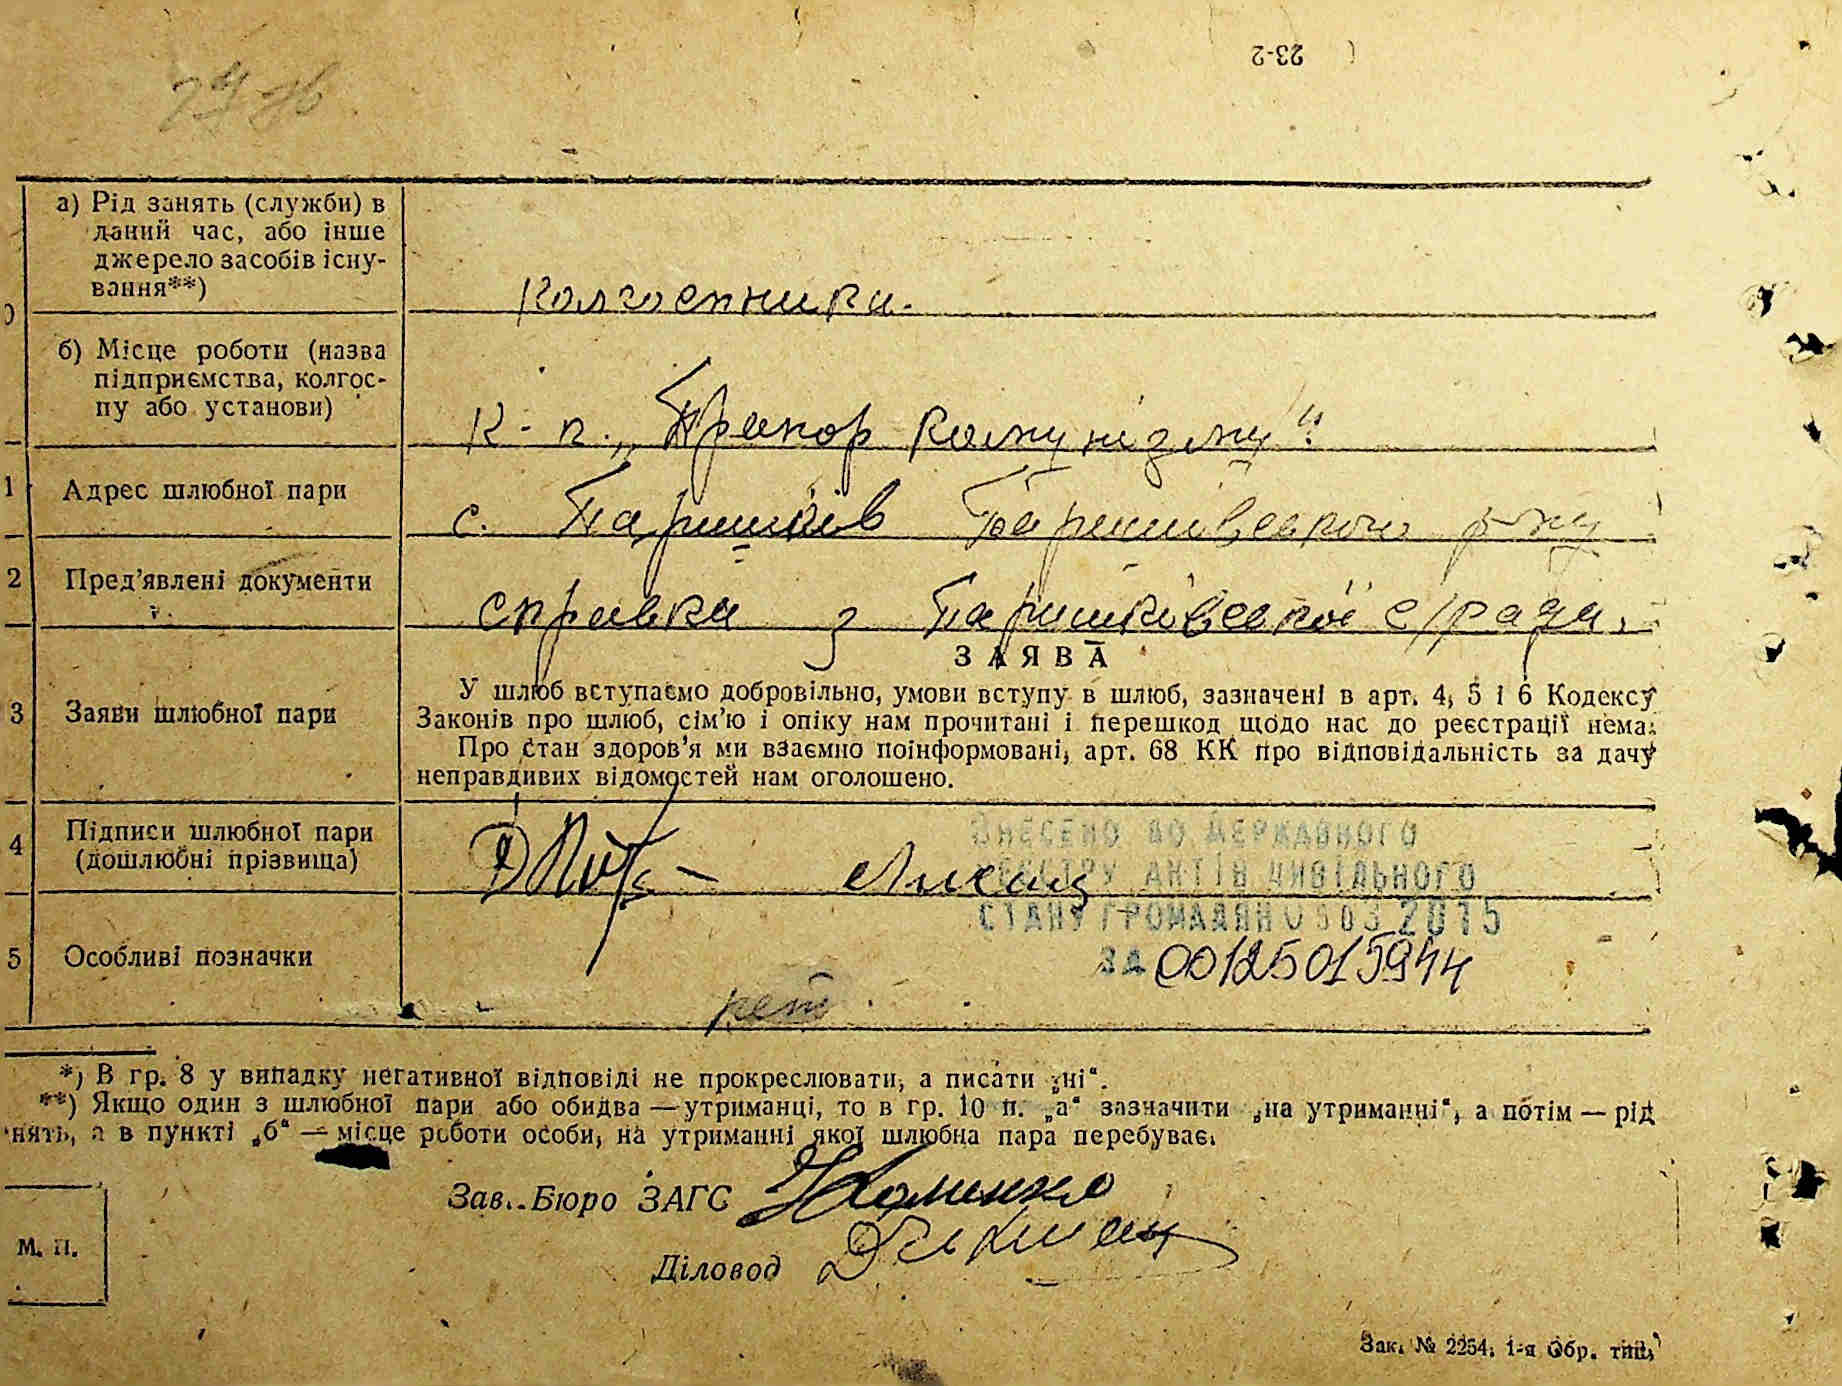 23-2
а) Рід занять (служби) в
даний час, або інше
джерело засобів існу-
вання**)
колгоспники.
б) Місце роботи (назва
підприємства, колгос-
пу або установи)
к-п. „Прапор комунізму"
1 Адрес шлюбної пари
с. Паришків Баришівського р-ну
2 Пред'явлені документи
справка з Паришківської с/ради.
ЗАЯВА
3 Заяви шлюбної пари
У шлюб вступаємо добровільно, умови вступу в шлюб, зазначені в арт. 4, 5 і 6 Кодексу
Законів про шлюб, сім'ю і опіку нам прочитані і перешкод щодо нас до реєстрації нема.
Про стан здоров'я ми взаємно поінформовані, арт. 68 КК про відповідальність за дачу
неправдивих відомостей нам оголошено.
4 Підписи шлюбної пари
(дошлюбні прізвища)
ВНЕСЕНО ДО ДЕРЖАВНОГО
РЕЄСТРУ АКТІВ ЦИВІЛЬНОГО
СТАНУ ГРОМАДЯН 2015
ЗА 00125015944
5 Особливі позначки
*) В гр. 8 у випадку негативної відповіді не прокреслювати, а писати „ні“.
**) Якщо один з шлюбної пари або обидва — утриманці, то в гр. 10 п. „а“ зазначити „на утриманні“, а потім — рід
нять, а в пункті „б“ — місце роботи особи, на утриманні якої шлюбна пара перебуває.
Зав. Бюро ЗАГС
Діловод
М. П.
Зак. № 2254. 1-я Обр. тип.